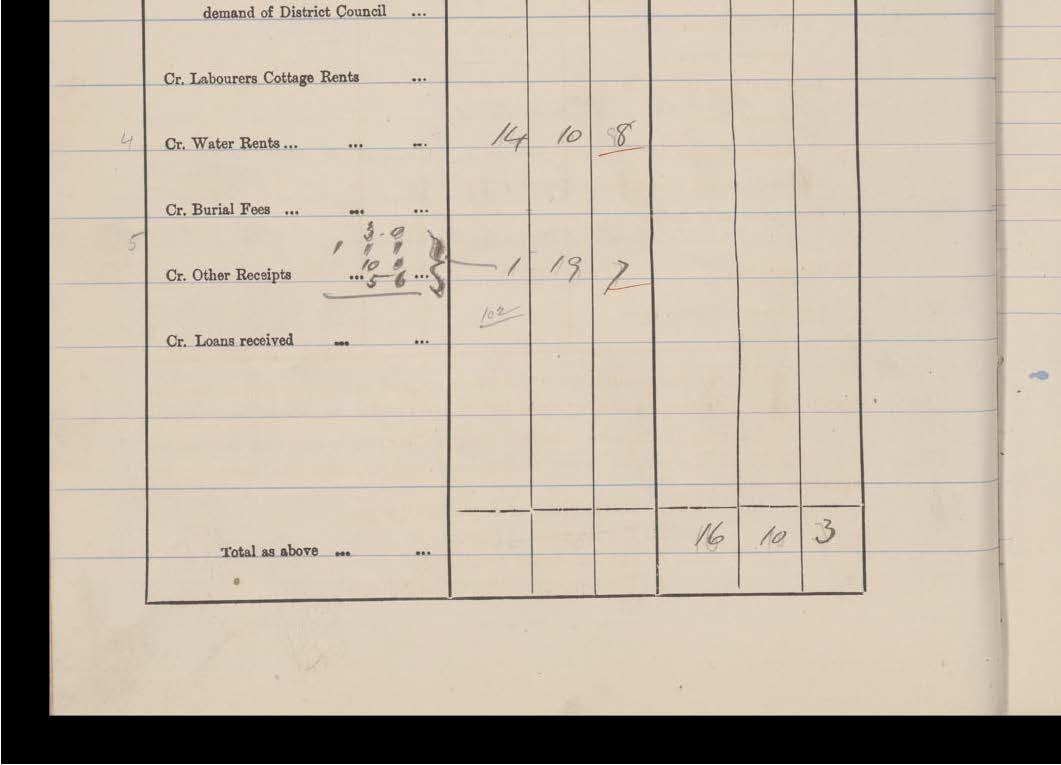 demand of District Council ...
Cr. Labourers Cottage Rents ...
4 Cr. Water Rents ... ... ... 14 10 8
Cr. Burial Fees ... ... ...
5
Cr. Other Receipts ... ... 1 19 7
10
5 6
102
Cr. Loans received ... ...
Total as above ... ... 16 10 3